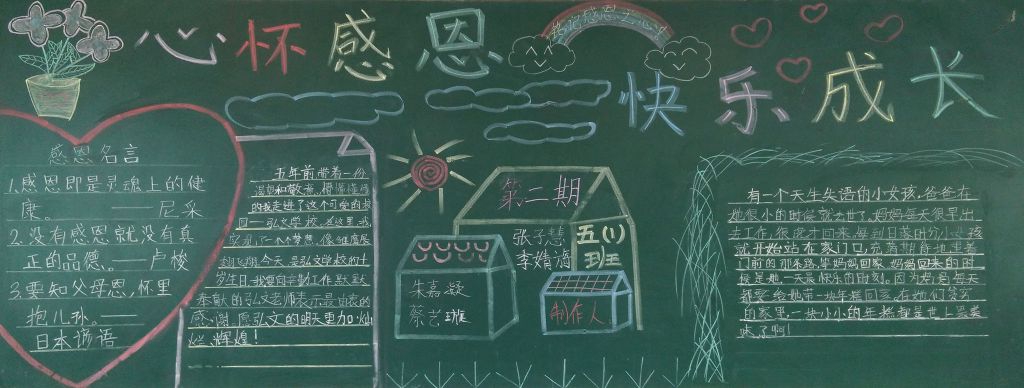 心怀感恩
快乐成长
感恩名言
1.感恩即是灵魂上的健
康。——尼采
2.没有感恩就没有真
正的品德。——卢梭
3.要知父母恩,怀里
抱儿孙。——
日本谚语
五年前带着一份
的我走进了这个可爱的校
园——弘文学校,在这里我
今天是弘文学校的十
岁生日,我要向辛勤工作,默默
奉献的弘文老师表示最由衷的
感谢,愿弘文的明天更加灿
烂、辉煌!
第二期
张子慧
李婧涵
五(1)
班
朱嘉凝
蔡艺璇
制作人
有一个天生失语的小女孩,爸爸在
她很小的时候就去世了。妈妈每天很早出
去工作,很晚才回来。每到日落时分,小女孩
就开始站在家门口,充满期待地望着
门前的那条路,等妈妈回家。妈妈回来的时
候是她一天最快乐的时刻。因为妈妈每天
都要给她带一块年糕回家。在她们贫穷
的家里,一块小小的年糕都是世上最美
味了啊!